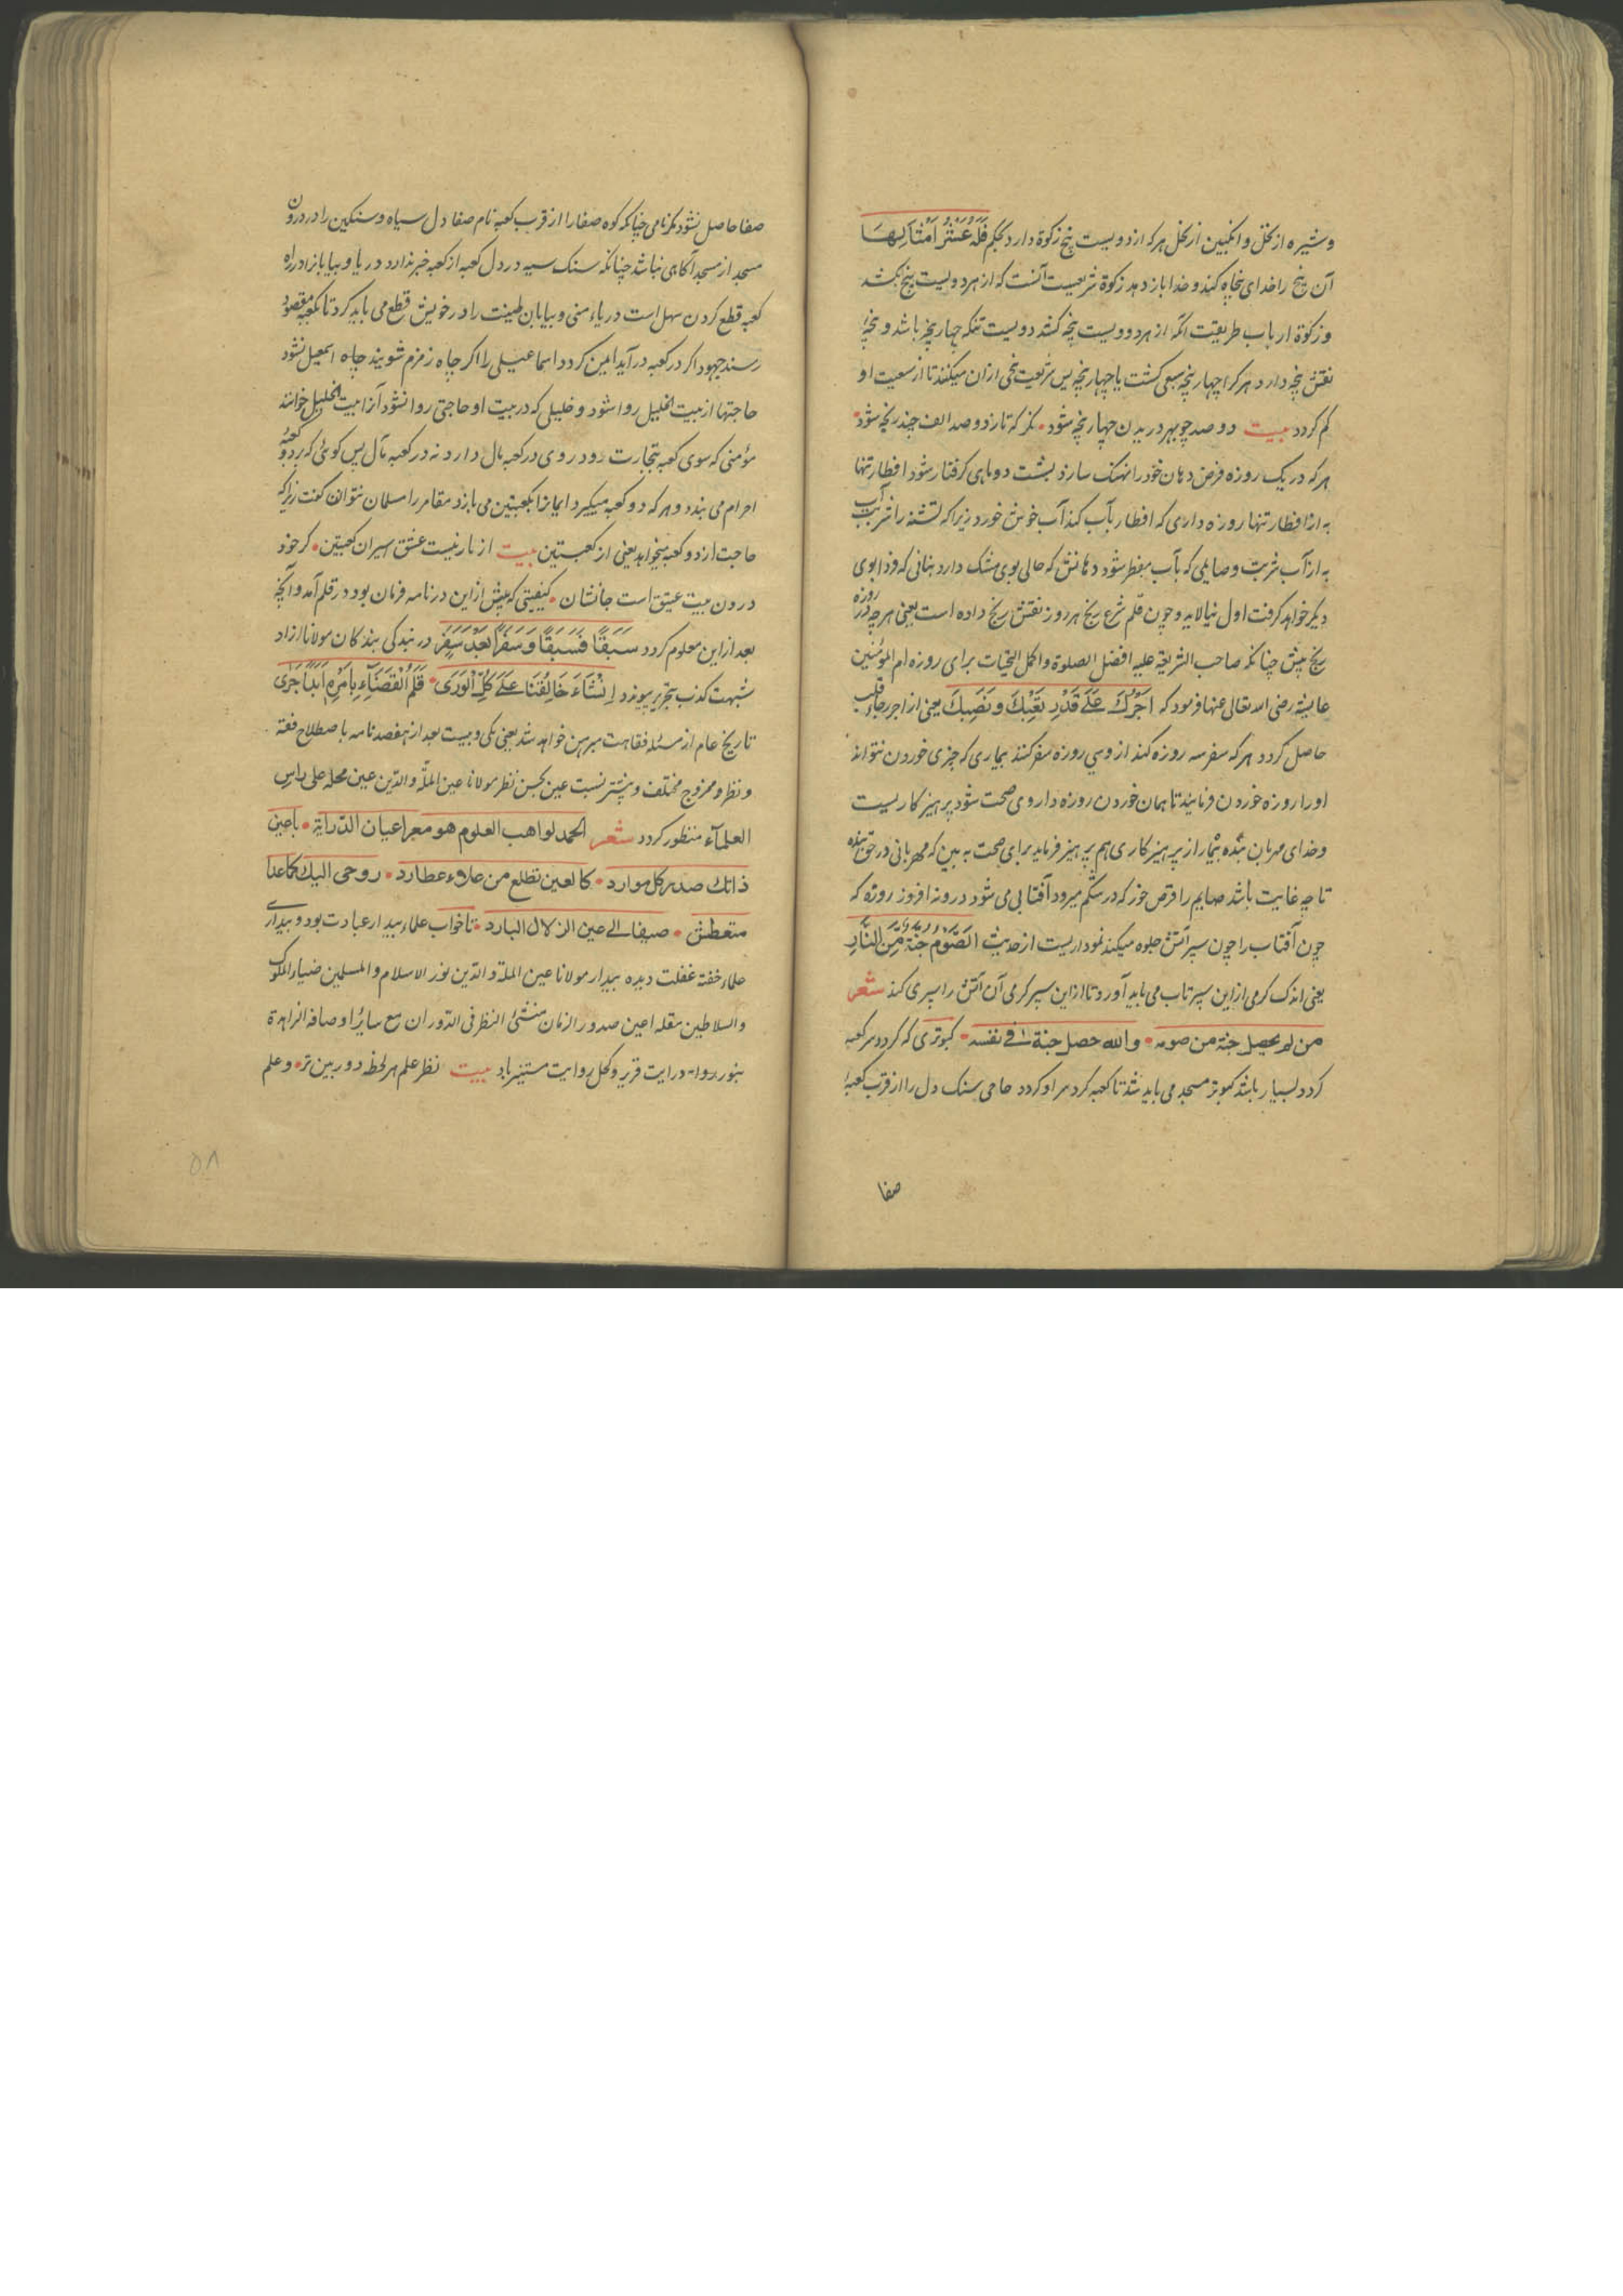 وشیره از نخل و انگبین از نحل هرکه از دویست پنج زکوة دارد بحکم فَلَهُ عَشْرُ اَمْثَالِهَا
آن پنج را خدای پنجاه کند و خدا باز دهد زکوة شریعت آنست که از هر دویست پنج بکشد
وزکوة ارباب طریقت آنکه از هر دو دویست پنجه کنند دویست تنکه چهار پنجه باشد و پنجه
نقش پنجه دارد هرکرا چهار پنجه سعی کشت یا چهار پنجه پس شریعت پنجی ازان میکند تا از سعیت او
کم کردد بیت دو صد چو بهر دریدن چهار پنجه شود • نکر که تا زد و صد الف چند پنجه شود •
هرکه در یک روزه فرض دهان خود را نهنک سازد بشت دو ماهی کرفتار شود افطار تنها
به از افطار تنها روزه داری که افطار بآب کند آب خوش خورد زیرا که تشنه را شربت آب
به از آب شربت و صایمی که بآب مفطر شود دهانش که حالی بوی مشک دارد بنانی که فردا بوی
دیکر خواهد کرفت اول نیالاید و چون قلم شرع رنج هر روز نقش رنج داده است یعنی هرچه در روزه
رنج بیش چنانکه صاحب الشریعة علیه افضل الصلوة و اکمل التحیات برای روزه ام المؤمنین
عایشه رضی الله تعالی عنها فرمود که اَجْرُكَ عَلَى قَدْرِ تَعَبِكَ وَنَصَبِكَ یعنی از اجر رجاء قلب
حاصل کردد هرکه سفر سه روزه کند از وسی روزه سفر کند بیماری که چیزی خوردن نتواند
اورا روزه خوردن فرمایند تا همان خوردن روزه داروی صحت شود پرهیز کاریست
وخدای مهربان بنده بیمار از پرهیزکاری هم پرهیز فرماید برای صحت به بین که مهربانی در حق بنده
تا چه غایت باشد صایم را قرص خور که در شکم میرود آفتابی می شود درونه افروز روزه که
چون آفتاب را چون سپر آتش جلوه میکند نموداریست از حدیث اَلصَّوْمُ جُنَّةٌ مِنَ النَّارِ
یعنی اندک کرمی ازاین سپر تاب می باید آورد تا ازاین سپر کرمی آن آتش را سپری کند شعر
من لم یحصل جنة من صومه • والله حصل جنة فی نفسه • کبوتری که کرد سر کعبه
کردد بسیار باشد کبوتر مسجد می باید شد تا کعبه کرد سر او کردد حاجی سنک دل را از قرب کعبه
صفا
صفا حاصل نشود مکر نامی چنانکه کوه صفا را از قرب کعبه نام صفا دل سیاه و سنکین را در درون
مسجد از مسجد آکاهی نباشد چنانکه سنک سیه در دل کعبه از کعبه خبر ندارد دریا و بیابانرا در راه
کعبه قطع کردن سهل است دریاء منی و بیابان طینت را در خویش قطع می باید کرد تا بکعبه مقصود
رسند جهود اکر در کعبه درآید امین کردد اسماعیلی را اکر چاه زمزم شویند چاه اسمعیل نشود
حاجتها از بیت الخلیل روا شود و خلیلی که در بیت او حاجتی روا نشود آنرا بیت الخلیل خوانند
مؤمنی که سوی کعبه بتجارت رود روی در کعبه مال دارد نه در کعبه مآل پس کوئی که بر دو کعبه
احرام می بندد و هرکه دو کعبه میکیرد ایمانرا بکعبتین می بازد مقامر را مسلمان نتوان کفت زیرا که
حاجت از دو کعبه میخواهد یعنی از کعبتین بیت از نار نیست عشق اسیران کعبتین • کر خود
درون بیت عتیق است جانشان • کیفیتی که پیش ازاین در نامه فرمان بود در قلم آمد و آنچه
بعد ازاین معلوم کردد سَبَقًا فَسَبَقًا وَسَفَرًا بَعْدَ سَفَرٍ در بندکی بندکان مولانا ازاد
شبهت کذب بتحریر پیوندد اِنْشَاءَ خَالِقُنَا عَلَى كُلِّ الْوَرَى • قَلَمُ الْقَضَاءِ بِاَمْرِهِ اَبَدًا جَرَى
تاریخ عام از مسئله فقاهت مبرهن خواهد شد یعنی یکی و بیست بعد از هفصد نامه باصطلاح فقه
ونظر و ممزوج مختلف و بیشتر نسبت عین بحسن نظر مولانا عین الملة والدین عین محله علی راس
العلمآء منظور کردد شعر الحمد لواهب العلوم هو معبر اعیان الدرایة • یا عین
ذاتك صدر كل موارد • كالعین تطلع من علوء عطارد • روحی الیك كما عدا
متعطش • صیفا الی عین الزلال البارد • تا خواب علماء بیدار عبادت بود و بیداری
علماء خفته غفلت دیده بیدار مولانا عین الملة والدین نور الاسلام والمسلمین ضیاء الملوك
والسلاطین مقله اعین صدور الزمان منشئ النظر فی الدوران مع سایر اوصافه الزاهرة
بنور روات درایت قریر و کحل روایت مستنیر باد بیت نظر علم هر لحظه دوربین تر • وعلم
۵۸